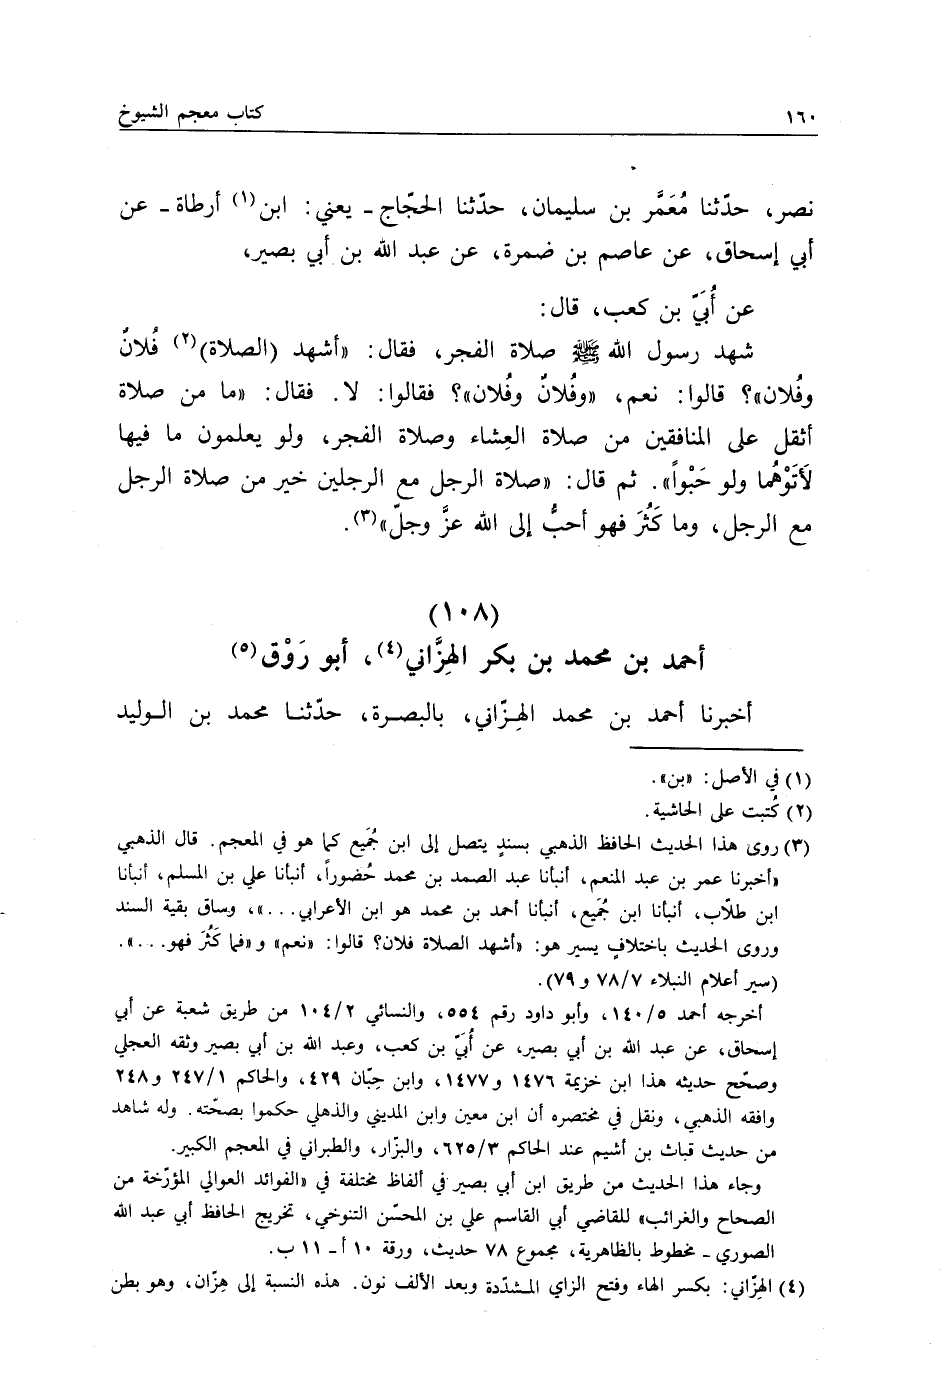 ١٦٠ كتاب معجم الشيوخ
نصر، حدّثنا مُعَمَّر بن سليمان، حدّثنا الحجّاج ـ يعني: ابن(١) أرطاة ـ عن
أبي إسحاق، عن عاصم بن ضمرة، عن عبد الله بن أبي بصير،
عن أُبَيّ بن كعب، قال:
شهد رسول الله ﷺ صلاة الفجر، فقال: «أشهد (الصلاة)(٢) فُلانٌ
وفُلان»؟ قالوا: نعم، «وفُلانٌ وفُلان»؟ فقالوا: لا. فقال: «ما من صلاة
أثقل على المنافقين من صلاة العِشاء وصلاة الفجر، ولو يعلمون ما فيها
لَأَتَوْهُما ولو حَبْواً». ثم قال: «صلاة الرجل مع الرجلين خير من صلاة الرجل
مع الرجل، وما كَثُرَ فهو أحبُّ إلى الله عزَّ وجلّ»(٣).
(١٠٨)
أحمد بن محمد بن بكر الهِزَّاني(٤)، أبو رَوْق(٥)
أخبرنا أحمد بن محمد الهِـزّاني، بالبصـرة، حدّثنـا محمد بن الـوليد
(١) في الأصل: «بن».
(٢) كُتبت على الحاشية.
(٣) روى هذا الحديث الحافظ الذهبي بسندٍ يتصل إلى ابن جُمَيع كما هو في المعجم. قال الذهبي
«أخبرنا عمر بن عبد المنعم، أنبأنا عبد الصمد بن محمد حُضوراً، أنبأنا علي بن المسلم، أنبأنا
ابن طلّاب، أنبأنا ابن جُميع، أنبأنا أحمد بن محمد هو ابن الأعرابي...»، وساق بقية السند
وروى الحديث باختلافٍ يسير هو: «أشهد الصلاة فلان؟ قالوا: «نعم» و«فما كَثُرَ فهو...».
(سير أعلام النبلاء ٧٨/٧ و٧٩).
أخرجه أحمد ١٤٠/٥، وأبو داود رقم ٥٥٤، والنسائي ١٠٤/٢ من طريق شعبة عن أبي
إسحاق، عن عبد الله بن أبي بصير، عن أُبَيّ بن كعب، وعبد الله بن أبي بصير وثقه العجلي
وصحّح حديثه هذا ابن خزيمة ١٤٧٦ و١٤٧٧، وابن حِبّان ٤٢٩، والحاكم ٢٤٧/١ و٢٤٨
وافقه الذهبي، ونقل في مختصره أن ابن معين وابن المديني والذهلي حكموا بصحّته. وله شاهد
من حديث قباث بن أشيم عند الحاكم ٦٢٥/٣، والبزّار، والطبراني في المعجم الكبير.
وجاء هذا الحديث من طريق ابن أبي بصير في ألفاظ مختلفة في «الفوائد العوالي المؤرّخة من
الصحاح والغرائب» للقاضي أبي القاسم علي بن المحسّن التنوخي، تخريج الحافظ أبي عبد الله
الصوري ـ مخطوط بالظاهرية، مجموع ٧٨ حديث، ورقة ١٠ أ ـ ١١ ب.
(٤) الهِزّاني: بكسر الهاء وفتح الزاي المـشدّدة وبعد الألف نون. هذه النسبة إلى هِزّان، وهو بطن